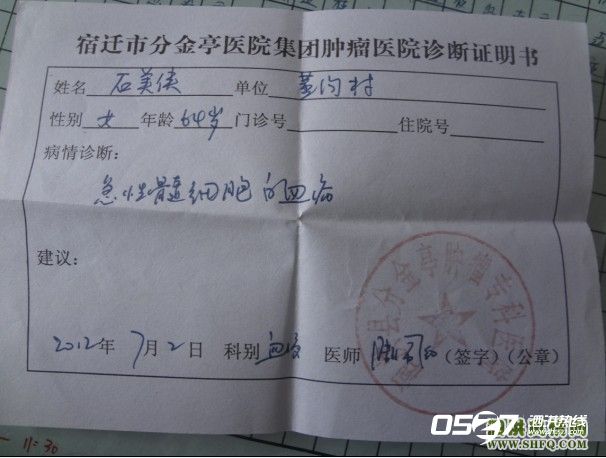 宿迁市分金亭医院集团肿瘤医院诊断证明书
姓名 石美侠 单位 黄沟村
性别 女 年龄 64岁 门诊号 住院号
病情诊断：
急性髓细胞白血病
建议：
2012年 7月2日 科别 血液 医师 （签字）（公章）
县分金亭肿瘤专科医
11:30
0527 泗洪热线
WWW.SHFQ.COM